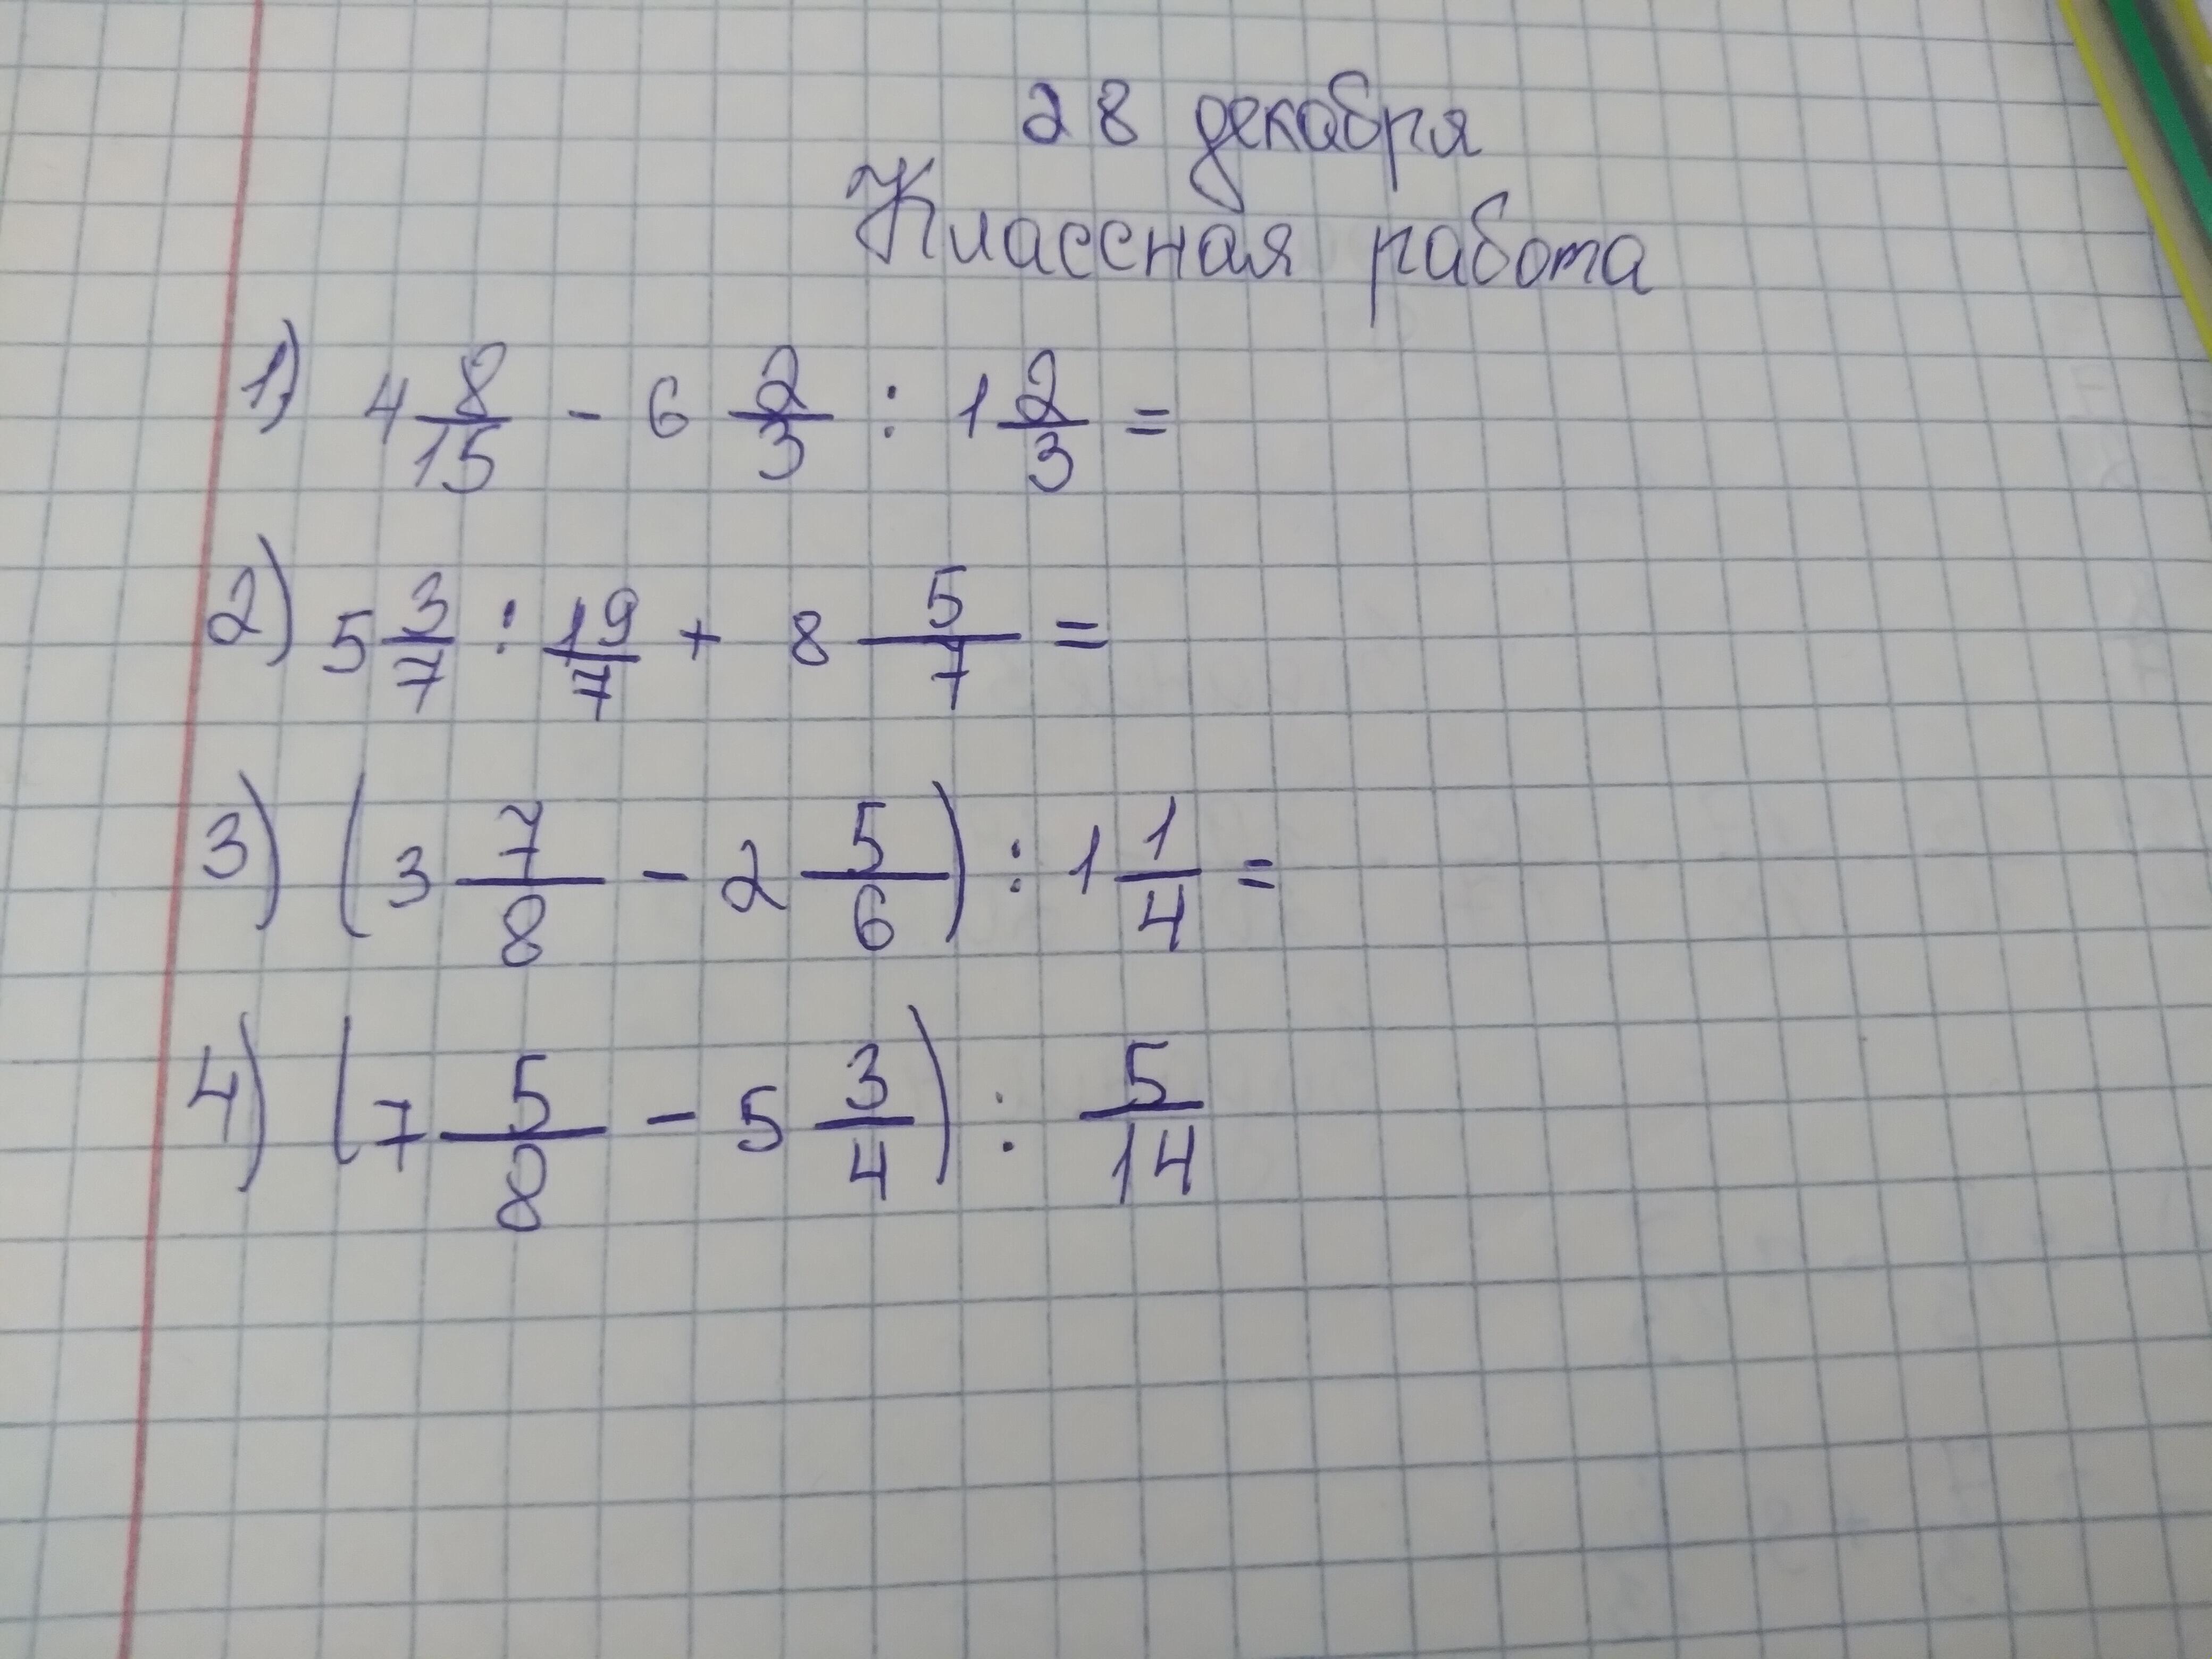 28 декабря
Классная работа
1) 4 8/15 - 6 2/3 : 1 2/3 =
2) 5 3/7 : 19/7 + 8 5/7 =
3) (3 7/8 - 2 5/6) : 1 1/4 =
4) (7 5/8 - 5 3/4) : 5/14